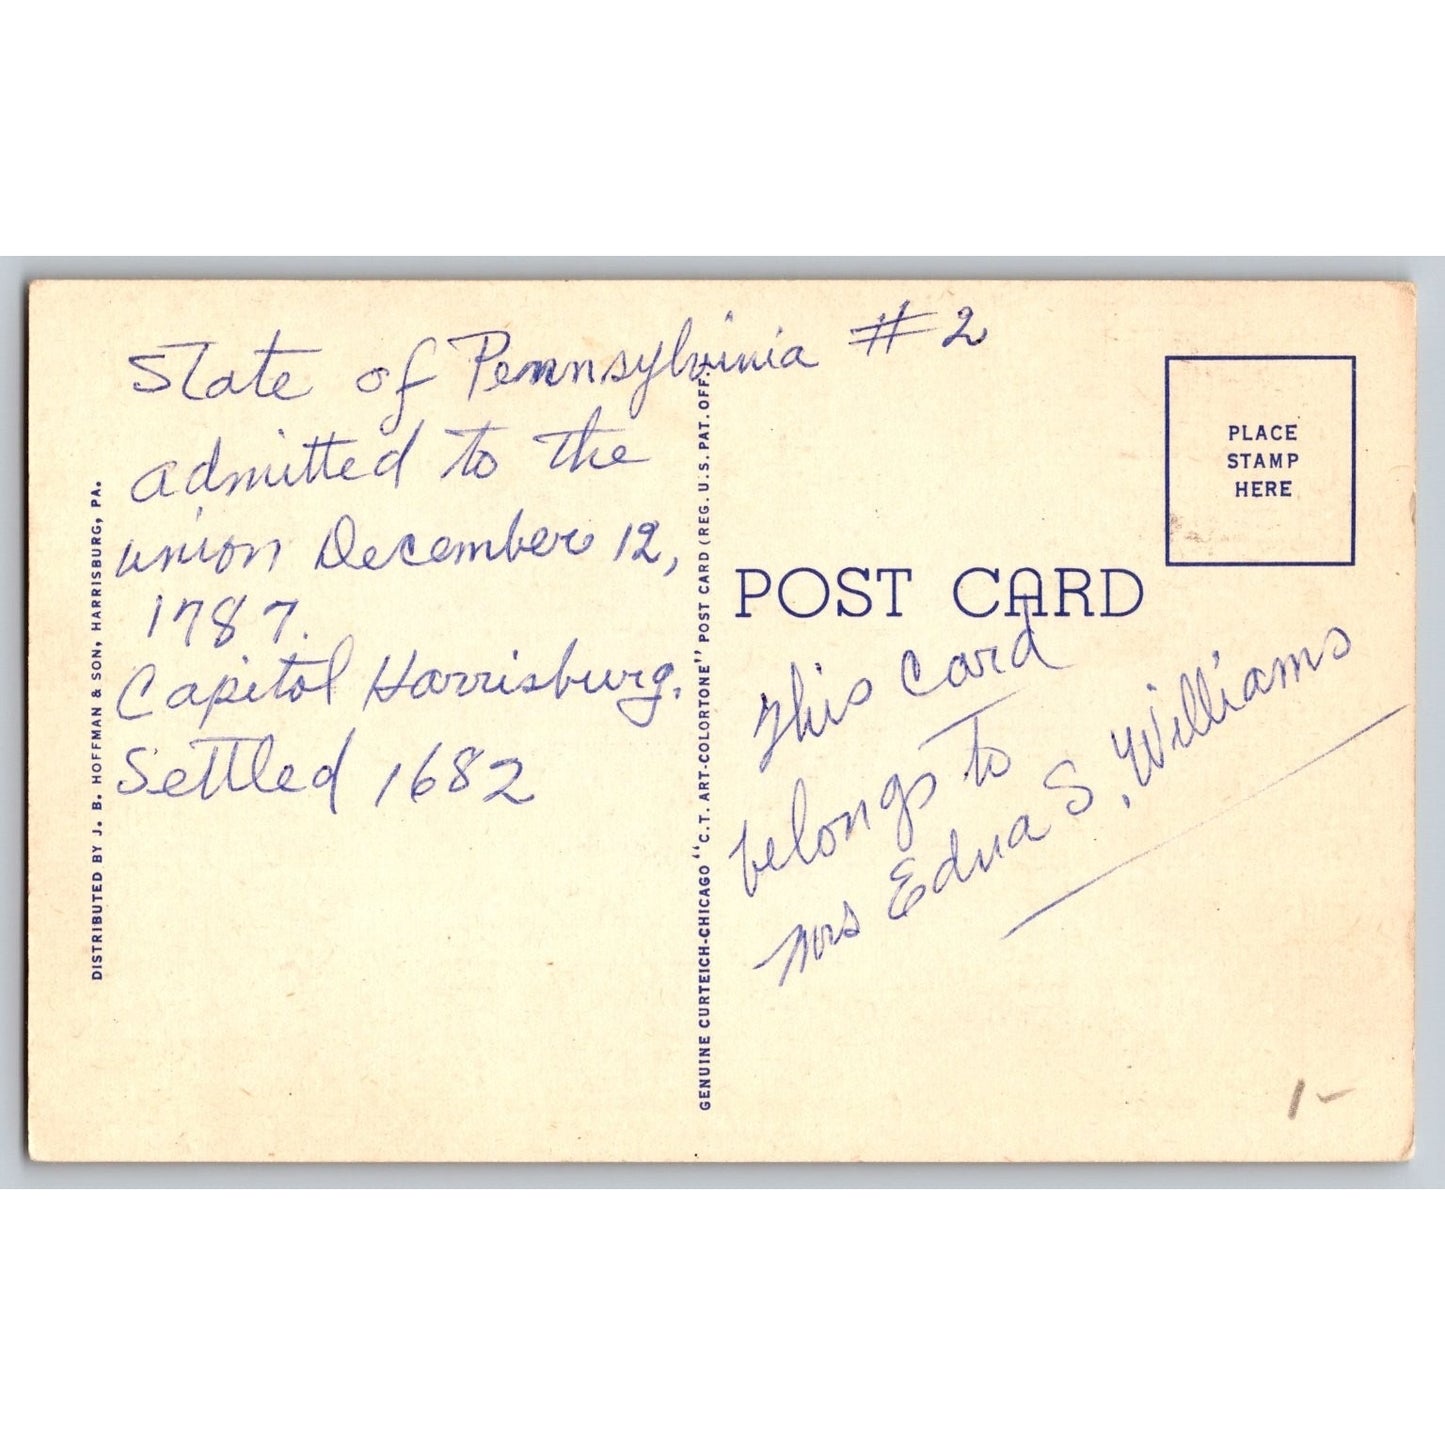 State of Pennsylvinia #2
admitted to the
union December 12,
1787.
Capitol Harrisburg.
Settled 1682
DISTRIBUTED BY J. B. HOFFMAN & SON, HARRISBURG, PA.
GENUINE CURTEICH-CHICAGO "C.T. ART-COLORTONE" POST CARD (REG. U.S. PAT. OFF.)
PLACE
STAMP
HERE
POST CARD
This card
belongs to
Mrs Edna S. Williams
1-